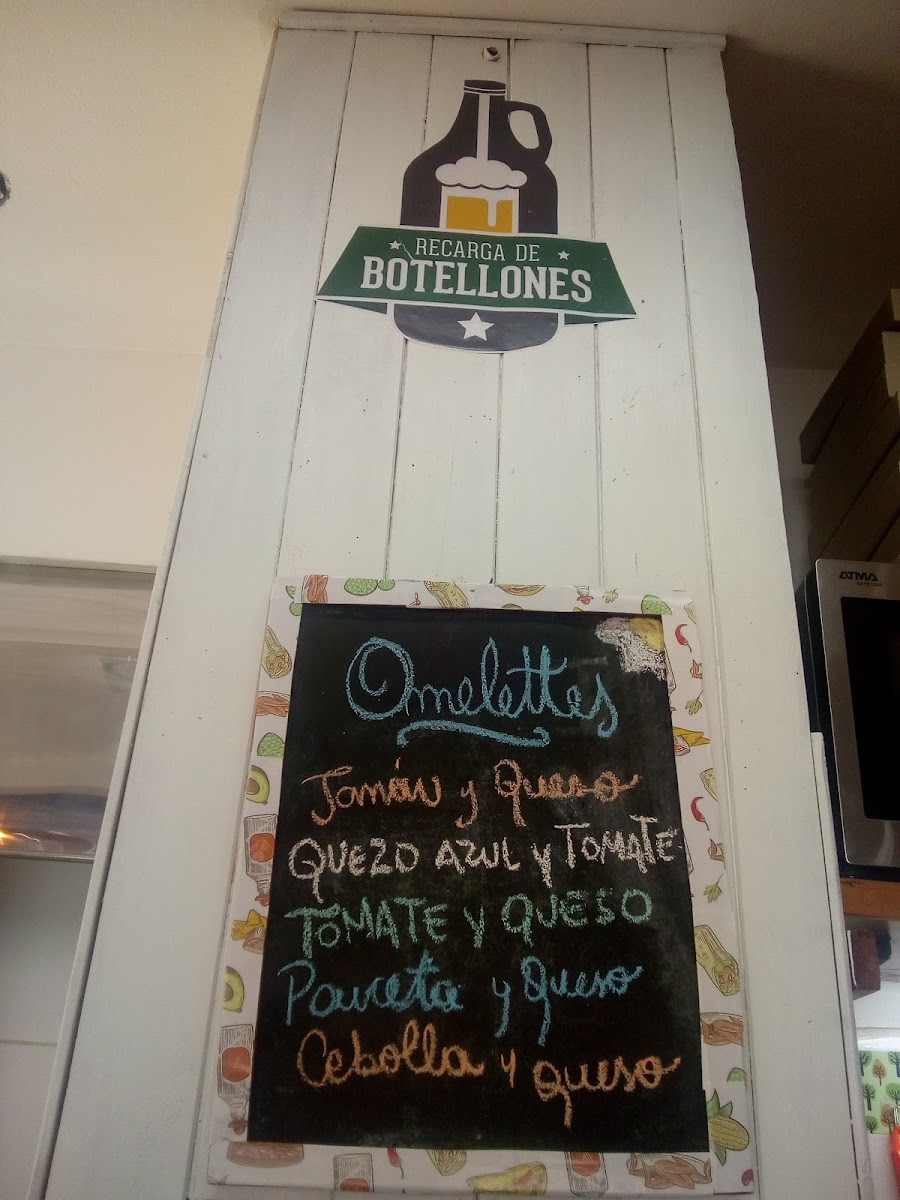 RECARGA DE
BOTELLONES
ATMA
Omelettes
Jamón y Queso
QUEZO AZUL y TOMATE
TOMATE y QUESO
Panceta y Queso
Cebolla y queso